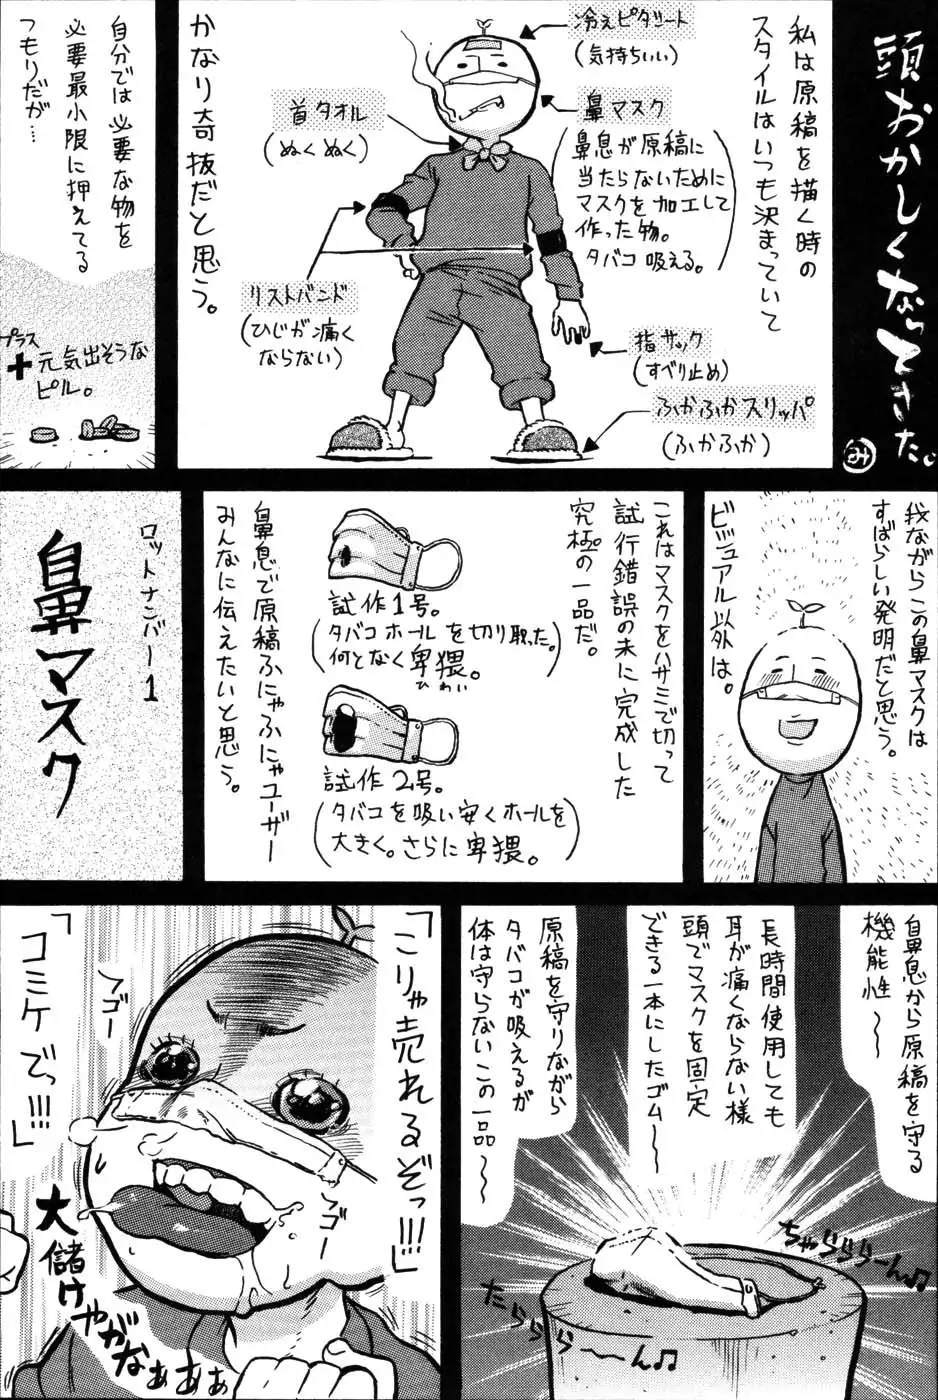 頭おかしくなってきた。
み
私は原稿を描く時の
スタイルはいつも決まっていて
冷えピタシート
(気持ちいい)
鼻マスク
(鼻息が原稿に
当たらないために
マスクを加工して
作った物。
タバコ吸える。)
首タオル
(ぬくぬく)
リストバンド
(ひじが痛く
ならない)
指サック
(すべり止め)
ふかふかスリッパ
(ふかふか)
かなり奇抜だと思う。
自分では必要な物を
必要最小限に押えてる
つもりだが…
プラス
+元気出そうな
ピル。
我ながらこの鼻マスクは
すばらしい発明だと思う。
ビジュアル以外は。
これはマスクをハサミで切って
試行錯誤の末に完成した
究極の一品だ。
試作1号。
(タバコホールを切り取った。
何となく卑猥。)
ひわい
試作2号。
(タバコを吸い安くホールを
大きく。さらに卑猥。)
鼻息で原稿ふにゃふにゃユーザー
みんなに伝えたいと思う。
ロットナンバー1
鼻マスク
鼻息から原稿を守る
機能性〜
長時間使用しても
耳が痛くならない様
頭でマスクを固定
できる一本にしたゴム〜
原稿を守りながら
タバコが吸えるが
体は守らないこの一品〜
ちゃらららーん♫
たららら〜ん♫
「こりゃ売れるぞっ!!!」
「コミケでっ!!!」
フゴー
フゴー
大儲けやがなぁぁぁ